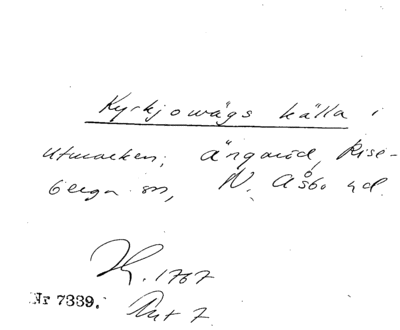 Kyrkjowägs källa i
utmarken, Ängaröd, Rise-
berga sn, N. Åsbo hd.
1767
Nr 7339. Akt 7